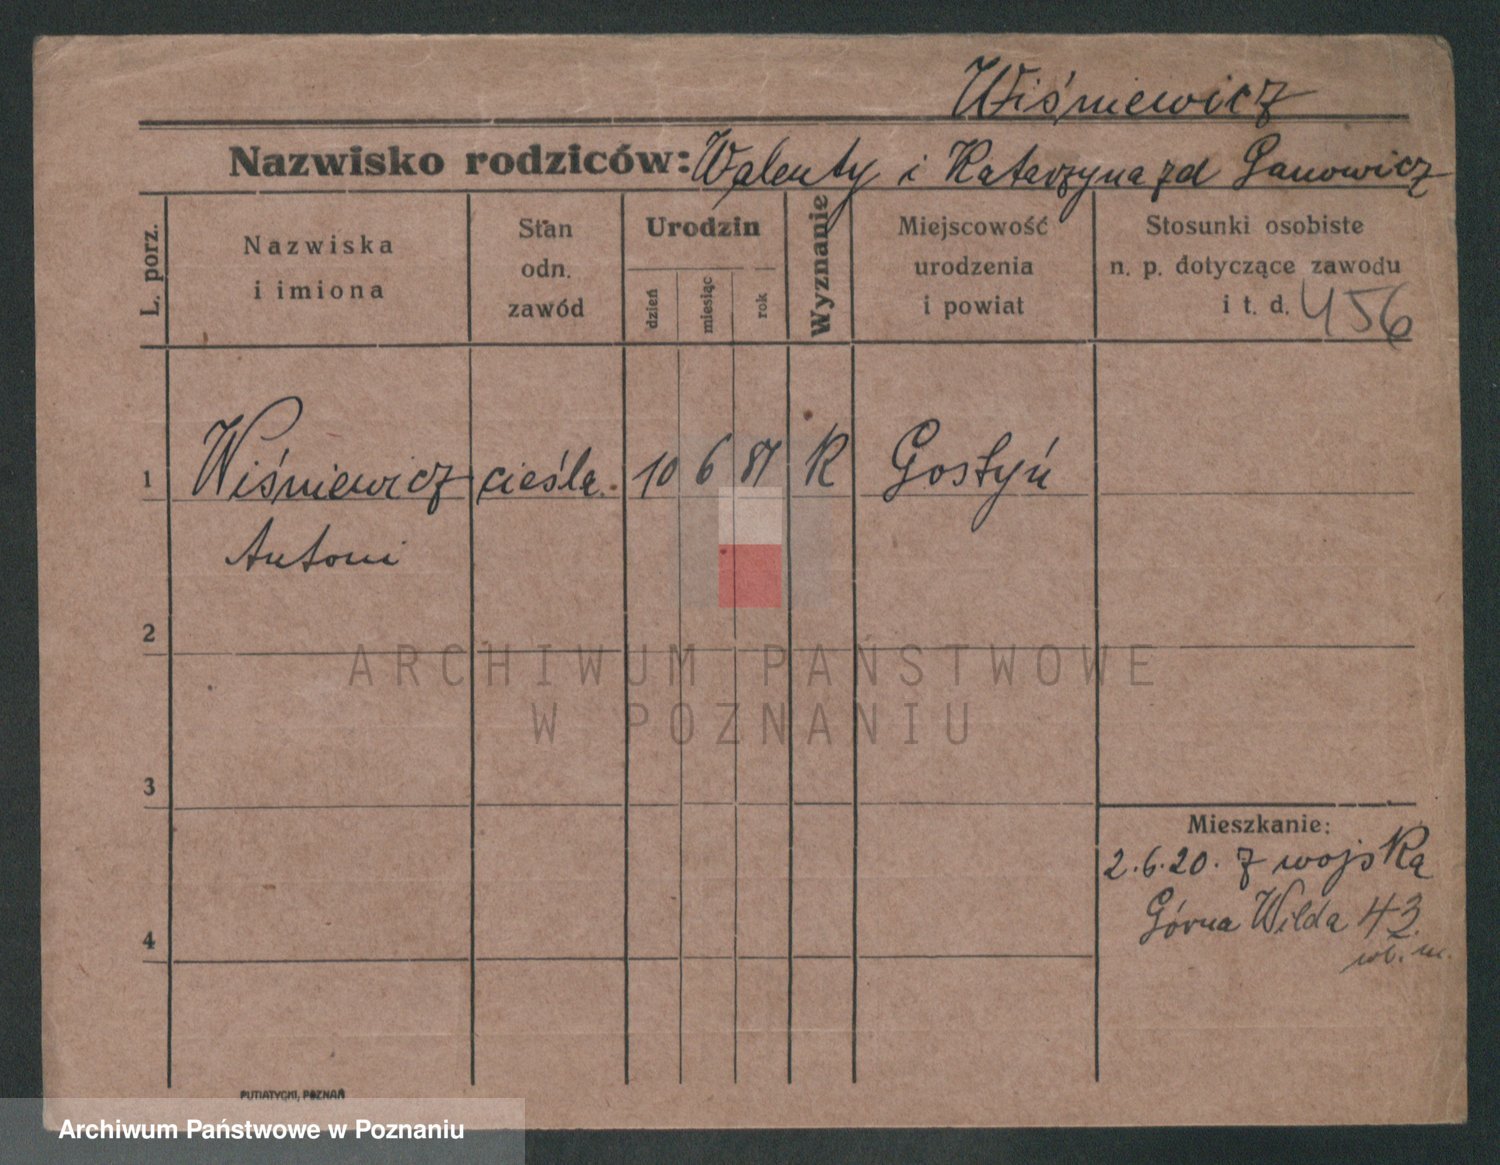 Wiśniewicz
Nazwisko rodziców: Walenty i Katarzyna zd Ganowicz
L. porz.
Nazwiska
i imiona
Stan
odn.
zawód
Urodzin
dzień
miesiąc
rok
Wyznanie
Miejscowość
urodzenia
i powiat
Stosunki osobiste
n. p. dotyczące zawodu
i t. d. 456
1 Wiśniewicz cieśla. 10 6 87 R Gostyń
Antoni
2
ARCHIWUM PAŃSTWOWE
W POZNANIU
3
Mieszkanie:
2.6.20. z wojska
Górna Wilda 43.
4
PUTIATYCKI, POZNAŃ
Archiwum Państwowe w Poznaniu